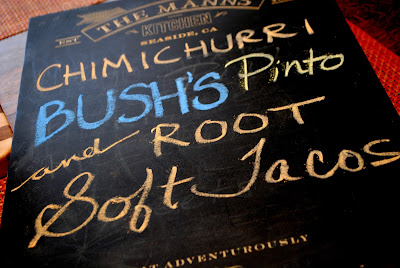 THE MANNS
EST KITCHEN
SEASIDE, CA
CHIMICHURRI
BUSH'S Pinto
and ROOT
Soft Tacos
T ADVENTUROUSLY